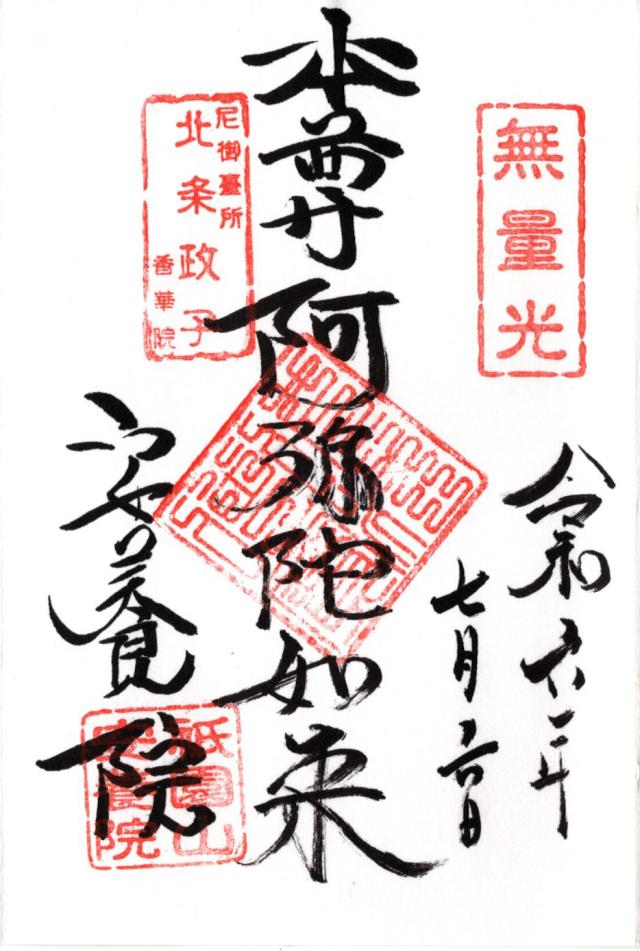 無量光
令和六年
七月六日
本尊阿弥陀如来
尼御臺所
北条政子
香華院
安養院
祇園山
安養院